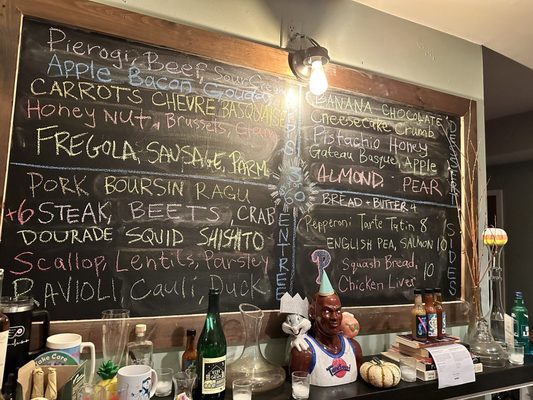 Pierogi, Beef, Sour Cream
Apple Bacon Gouda
CARROTS CHEVRE BASQUAISE
Honey Nut, Brussels, Clam
FREGOLA, SAUSAGE, PARM
APPS
PORK BOURSIN RAGU
+6 STEAK, BEETS, CRAB
DOURADE SQUID SHISHITO
Scallop, Lentils, Parsley
RAVIOLI Cauli, Duck
ENTREE
BANANA CHOCOLATE
Cheesecake Crumb
Pistachio Honey
Gateau Basque, Apple
ALMOND PEAR
DESSERT
BREAD + BUTTER 4
Pepperoni Tarte Tatin 8
ENGLISH PEA, SALMON 10
Squash Bread, 10
Chicken Liver
SIDES
Take